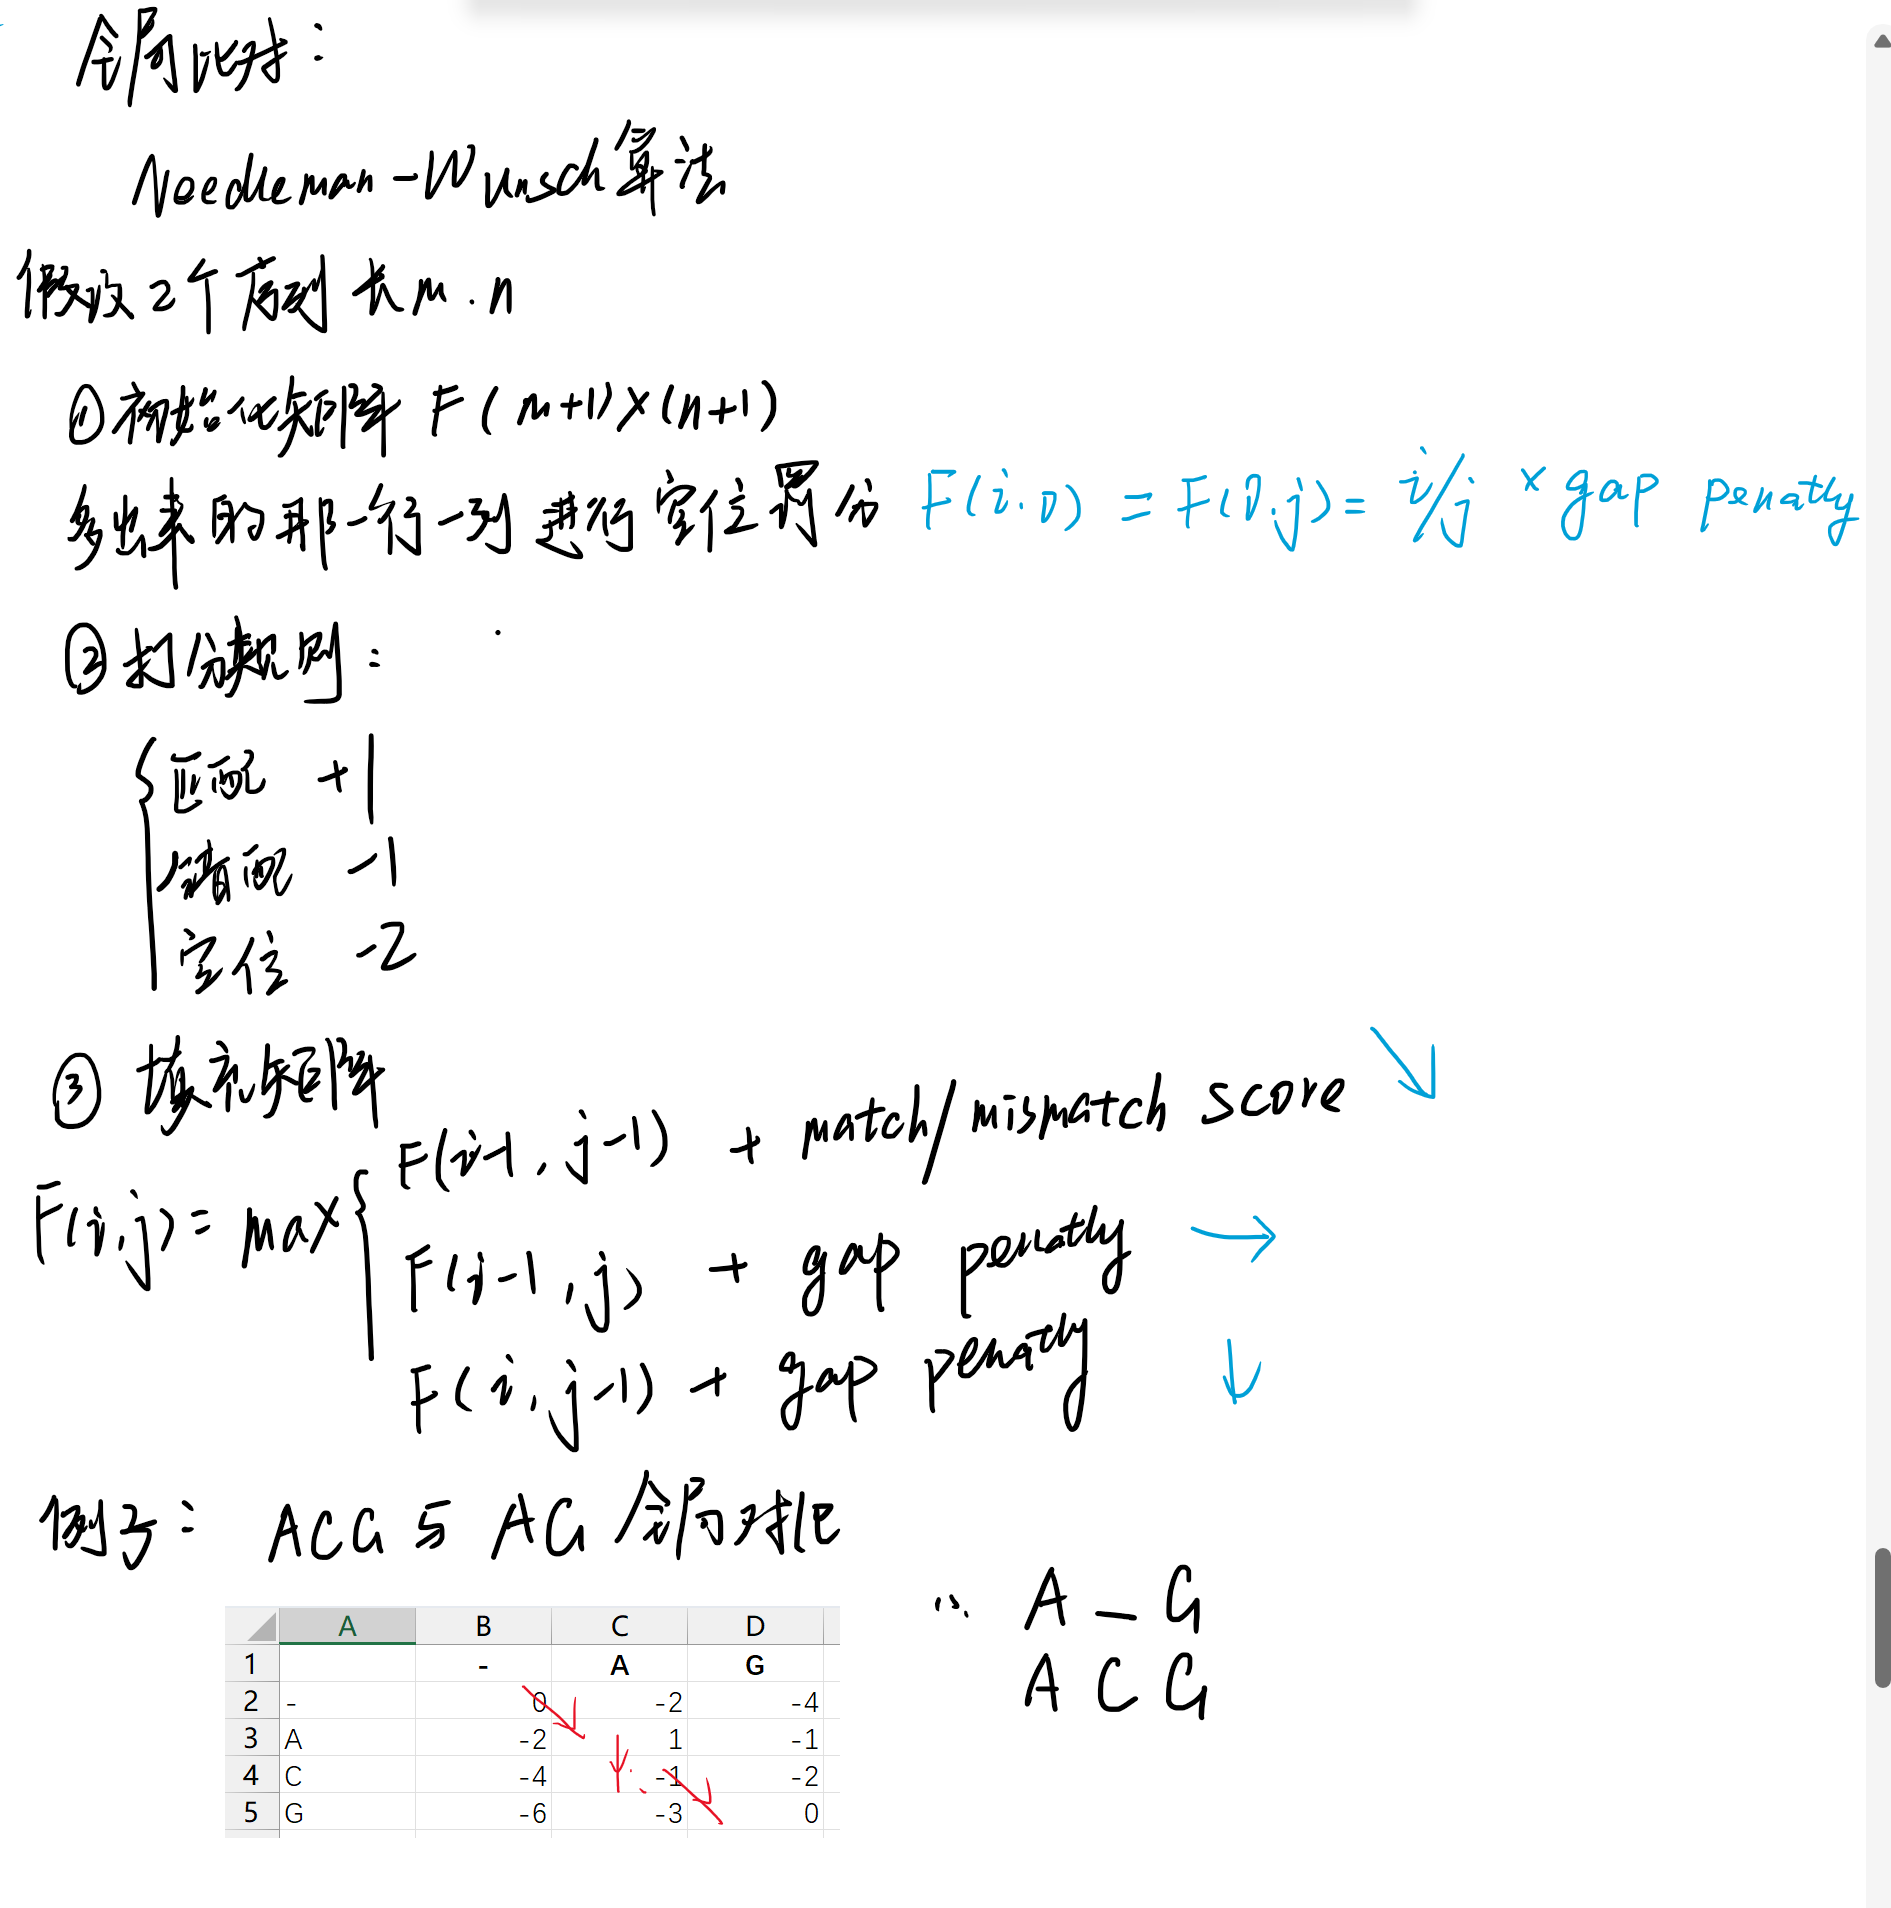 全局比对：
Needleman-Wunsch算法
假设2个序列长m.n
①初始化矩阵 F(m+1)×(n+1)
多出来的那一行一列进行空位罚分 F(i.0) = F(0.j) = i/j × gap penatly
②打分规则：
匹配 +1
错配 -1
空位 -2
③ 填充矩阵
F(i,j) = max{
F(i-1, j-1) + match/mismatch score ↘
F(i-1, j) + gap penatly →
F(i, j-1) + gap penatly ↓
例子：ACG与AG全局对比
A B C D
1 - A G
2 - 0 -2 -4
3 A -2 1 -1
4 C -4 -1 -2
5 G -6 -3 0
∴ A _ G
A C G